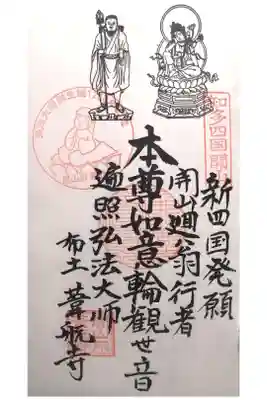 新四国発願
開山廻公翁行者
本尊如意輪観世音
遍照弘法大師
布土 葦航寺
知多四国開